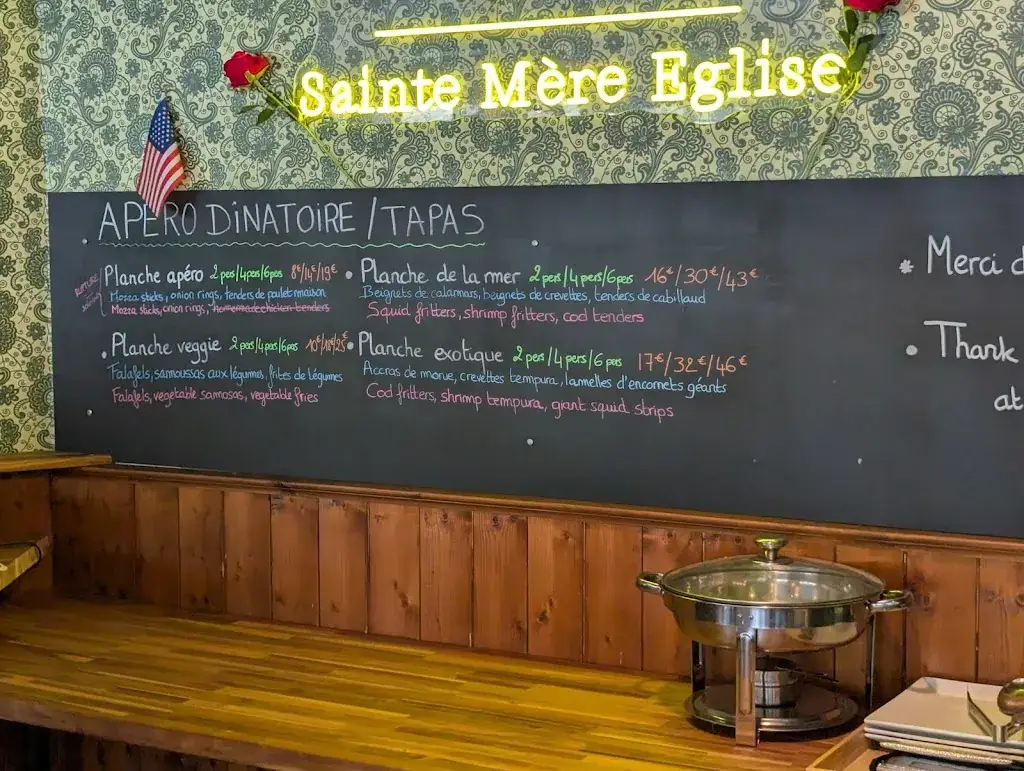 Sainte Mère Eglise
APÉRO DINATOIRE / TAPAS
RUPTURE
Planche apéro 2 pers/4pers/6pers 8€/14€/19€
Mozza sticks, onion rings, tenders de poulet maison
Mozza sticks, onion rings, homemade chicken tenders
• Planche veggie 2 pers/4pers/6pers 10€/18€/25€
Falafels, samoussas aux légumes, frites de légumes
Falafels, vegetable samosas, vegetable fries
• Planche de la mer 2 pers/4 pers/6 pers 16€/30€/43€
Beignets de calamars, beignets de crevettes, tenders de cabillaud
Squid fritters, shrimp fritters, cod tenders
• Planche exotique 2 pers/4 pers/6 pers 17€/32€/46€
Accras de morue, crevettes tempura, lamelles d'encornets géants
Cod fritters, shrimp tempura, giant squid strips
* Merci d
• Thank
at